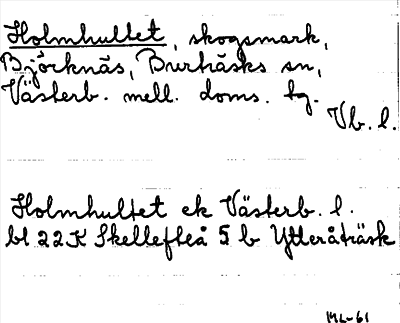 Holmhultet, skogsmark,
Björknäs, Burträsks sn,
Västerb. mell. doms. tg.
Vb. l.
Holmhultet ek Västerb. l.
bl 22K Skellefteå 5 b Ytteråträsk
ML-61